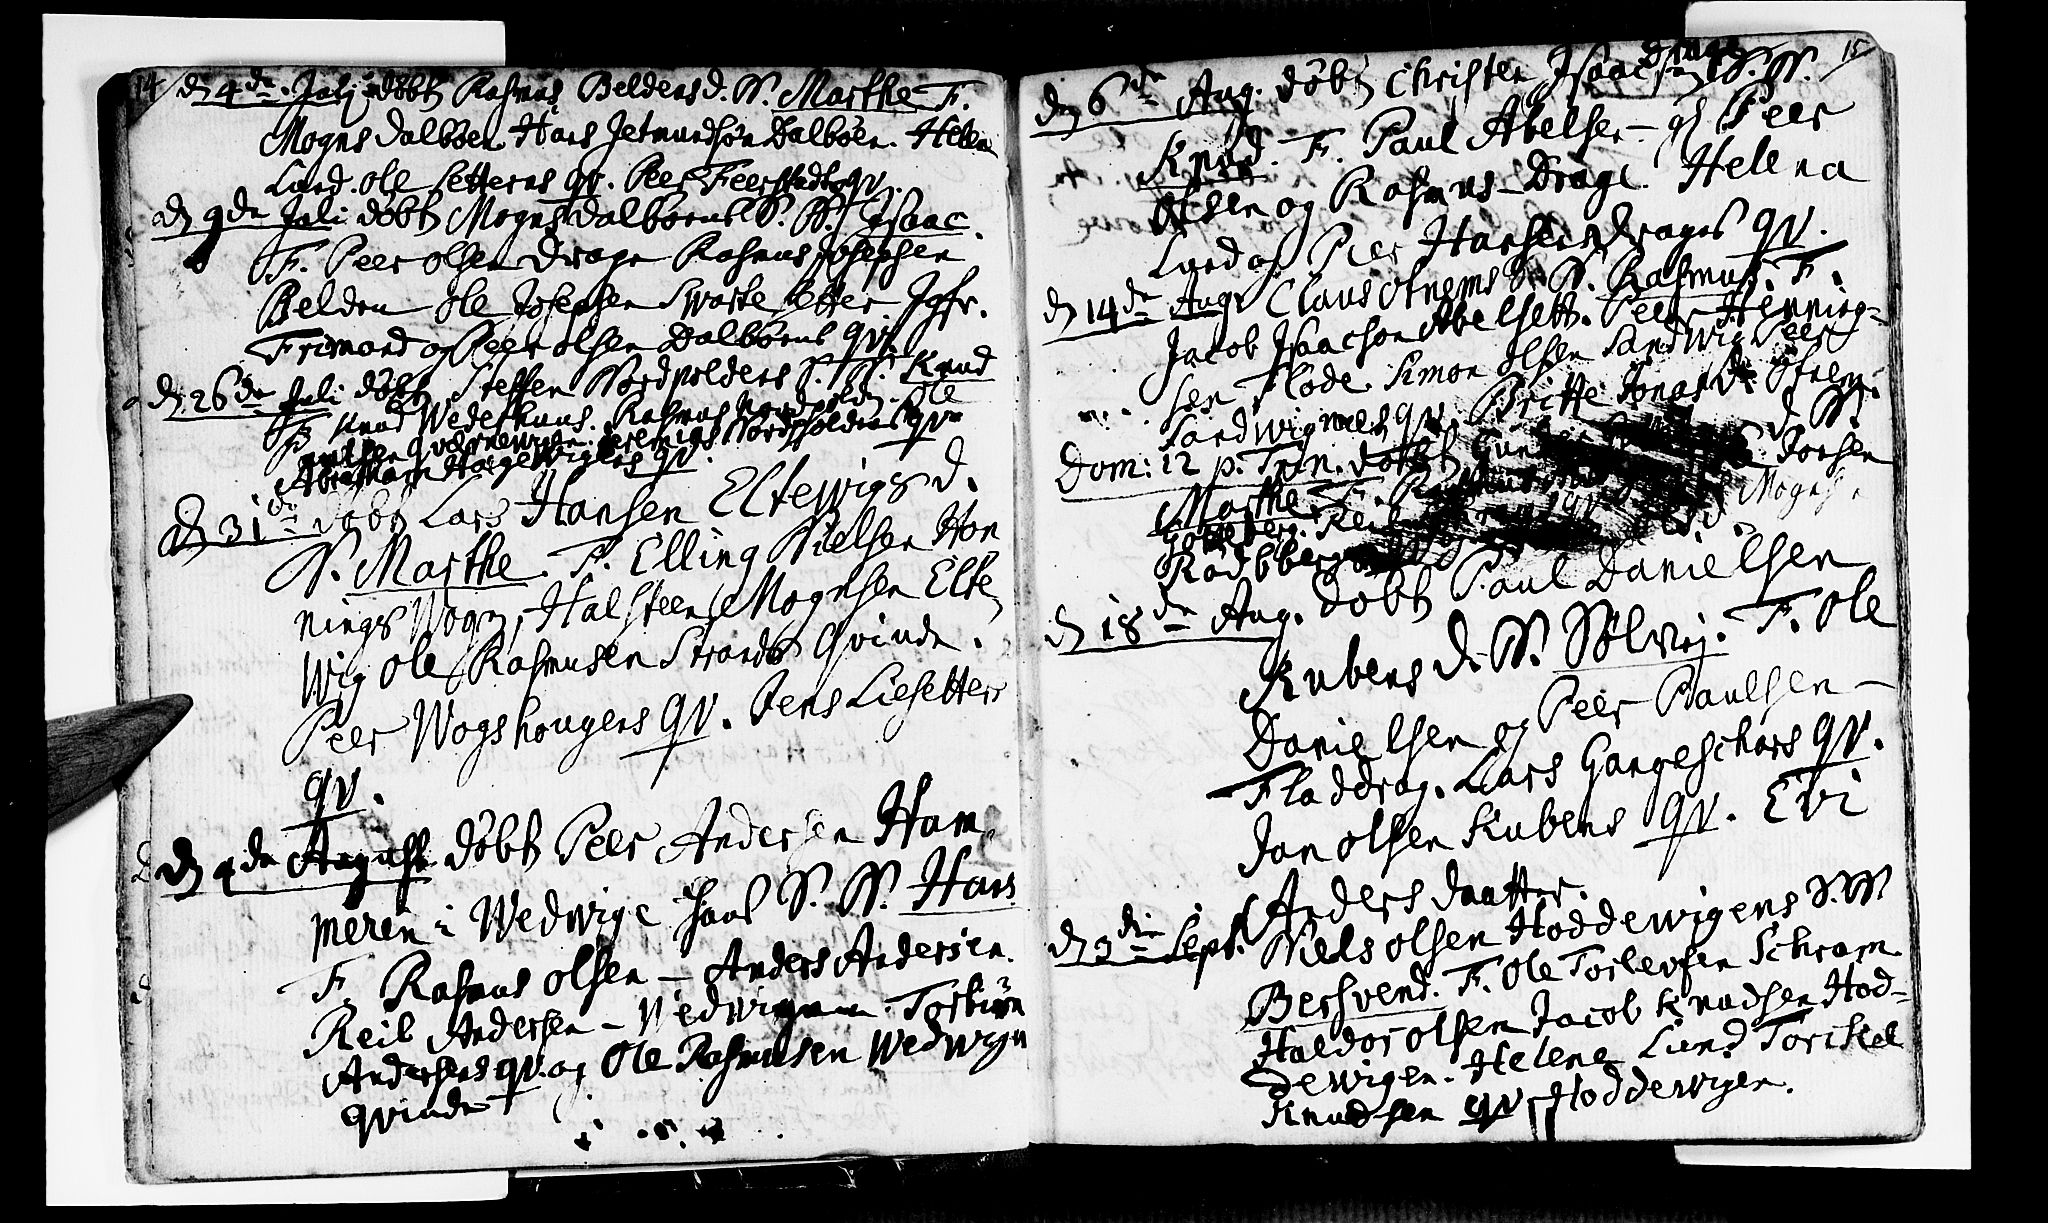 14
d 4de Juli döbt Rasmus Beldens d. N. Marthe F.
Mogns Dalböen Hans Jetmundsön Dalböen. Helen
Lund. Ole Setterns qv. Peer Feerstadts qv.
d 9de Juli döbt Mogns Dalböens S. N. Isaac.
F. Peer Olsen Drage Rasmus Josephsen
Belden Ole Josephsen Swarte setter. Jgfr.
Frimand og Peer Olsen Dalböens qv.
d. 26de Juli döbt Steffen Nordpoldens S. N. Knud
F. Knud Wedeshuus. Rasmus Nordpolden. Ole
Nordpoldens qv.
Abraham qv.
d 31de döbt Lars Hansen Eltewigs d.
N. Marthe. F. Elling Nielsen Hon
nings Wogn, Halsteen Mognsen Elte
wig Ole Rasmusen Strands qvinde.
Peer Wogshougens qv. Jens Liesetters
qv.
d 4de August döbt Peer Andersen Ham-
meren i Wedwige hans S. N. Hans
F. Rasmus Olsen – Anders Andersen.
Keil Andersen – Wedwignen. Torbiörn
Andersens qv. og Ole Rasmusen Wedwign
qvinde
15
d 6de Aug. döbt Christen Isaacsen Drage S. N.
Knud. F. Paul Abelsen – og Peer
Olsen og Rasmus Drage. Helena
Lund og Peer Hansens Drages qv.
d 14de Aug. Claus Otnems S. N. Rasmus. F.
Jacob Isaacson Abelsett. Peer Henning-
sen Flöde Simon Olsen Sandwig Peer
Sandwignes qv. Britte Jonasd. Otnem.
Dom: 12 p. Trin. döbt d. N.
Marthe. F. Rasmus
Mognsen
Rödsberg
d 18de Aug. döbt Paul Danielsen
Kubens d. N. Sölwei. F. Ole
Danielsen og Peer Paulsen –
Fladdrag. Lars Gangeschars qv.
Jon Olsen Kubens qv. Eli
Anders daatter.
d 3die Sept. Niels Olsen Hoddewigens S. N.
Bersvend. F. Ole Torlevsen Schram
Haldor Olsen Jacob Knudsen Hod-
dewigen. Helene Lund Torckel
Knudsen qv Hoddewigen.